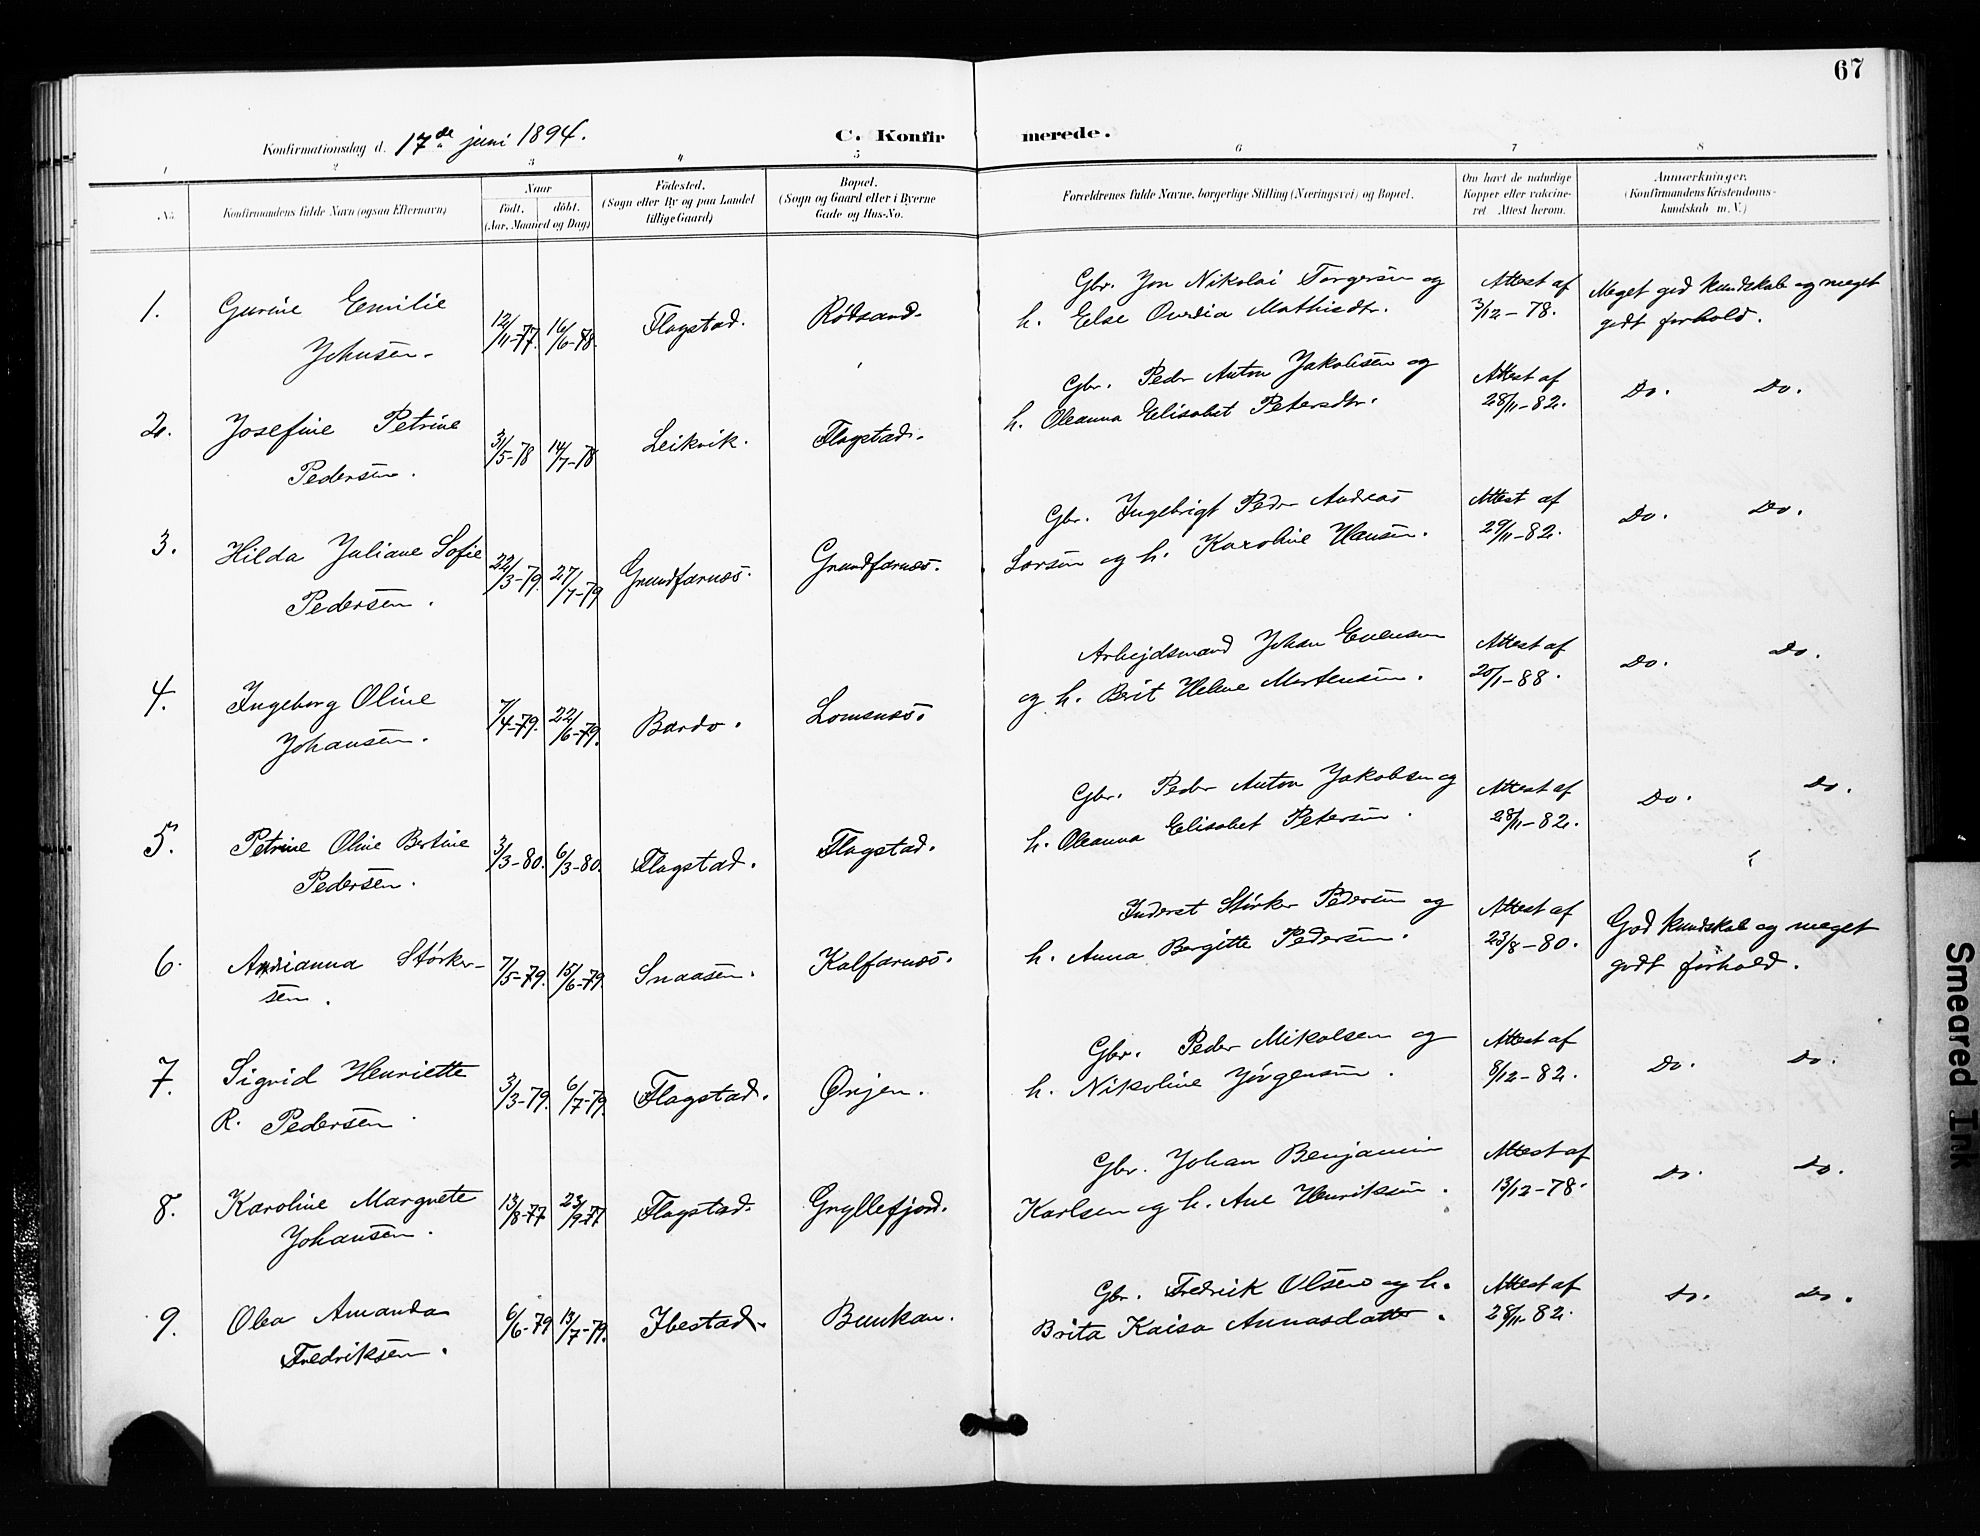 67
Konfirmationsdag d. 17de juni 1894.
C. Konfirmerede.
1 2 3 4 5 6 7 8
No.
Konfirmandens fulde Navn (ogsaa Efternavn)
Naar
født, døbt.
(Aar, Maaned og Dag)
Fødested.
(Sogn eller By og paa Landet
tillige Gaard)
Bopæl.
(Sogn og Gaard eller i Byerne
Gade og Hus-No.
Forældrenes fulde Navne, borgerlige Stilling (Næringsvei) og Bopæl.
Om havt de naturlige
Kopper eller vakcine-
ret Attest herom.
Anmærkninger.
(Konfirmandens Kristendoms-
kundskab m. V.)
1. Gurine Emilie
Johnsen. 12/11-77. 16/6-78. Flagstad. Rødsand.
Gbr. Jon Nikolai Torgersen og
h. Else Ovedia Mathisdtr.
Attest af
3/12-78.
Meget god kundskab og meget
godt forhold.
2. Josefine Petrine
Pedersen. 31/5-78 14/7-78 Leikvik. Flagstad.
Gbr. Peder Anton Jakobsen og
h. Oleanna Elisabet Petersdtr.
Attest af
28/11-82.
Do. Do.
3. Hilda Juliane Sofie
Pedersen. 22/3-79. 27/7-79 Grundfarnæs. Grundfarnæs.
Gbr. Ingebrigt Peder Andreas
Larsen og h. Karoline Hansen.
Attest af
29/11-82.
Do. Do.
4. Ingeborg Oline
Johansen. 7/4-79. 22/6-79. Bardo. Lomsnæs.
Arbejdsmand Johan Evensen
og h. Berit Helene Mortensen.
Attest af
20/1-88.
Do. Do.
5. Petrine Oline Bertine
Pedersen. 3/3-80. 6/3-80. Flagstad. Flagstad.
Gbr. Peder Anton Jakobsen og
h. Oleanna Elisabet Petersen.
Attest af
28/11-82.
Do. Do.
6. Adrianna Størker-
sen. 7/5-79. 15/6-79 Snaasen. Kalfarnæs.
Inderst Størker Pedersen og
h. Anna Bergitte Pedersen.
Attest af
23/8-80.
God kundskab og meget
godt forhold.
7. Sigrid Henriette
R. Pedersen 3/3-79. 6/7-79. Flagstad. Ørjen.
Gbr. Peder Mikalsen og
h. Nikoline Jørgensen.
Attest af
8/12-82.
Do. Do.
8. Karoline Margrete
Johansen. 13/8-77 23/9-77 Flagstad. Gryllefjord.
Gbr. Johan Benjamin
Karlsen og h. Ane Henriksen.
Attest af
13/12-78.
Do. Do.
9. Olea Amanda
Fredriksen. 6/6-79 13/7-79. Ibestad. Bunkan.
Gbr. Fredrik Olsen og h.
Brita Kaisa Annasdatter.
Attest af
28/11-82.
Do. Do.
Smeared Ink